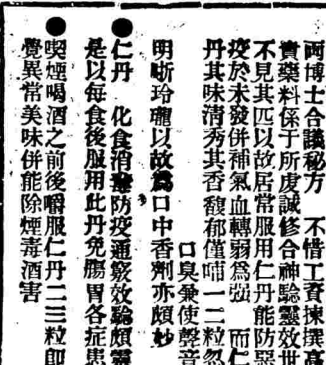 両博士合議秘方　不惜工資揀撰高
貴藥料係于所虔誠修合神驗靈效世
不見其匹以故居常服用仁丹能防惡
疫於未發併補氣血轉弱爲强　而仁
丹其味清秀其香馥郁僅哺一二粒忽
口臭兼使聲音
明晰玲瓏以故爲口中香劑亦頗妙
●仁丹　化食消毒防疫通竅效驗頗靈
是以每食後服用此丹免膓胃各症患
●喫煙喝酒之前後嚼服仁丹二三粒即
覺異常美味併能除煙毒酒害